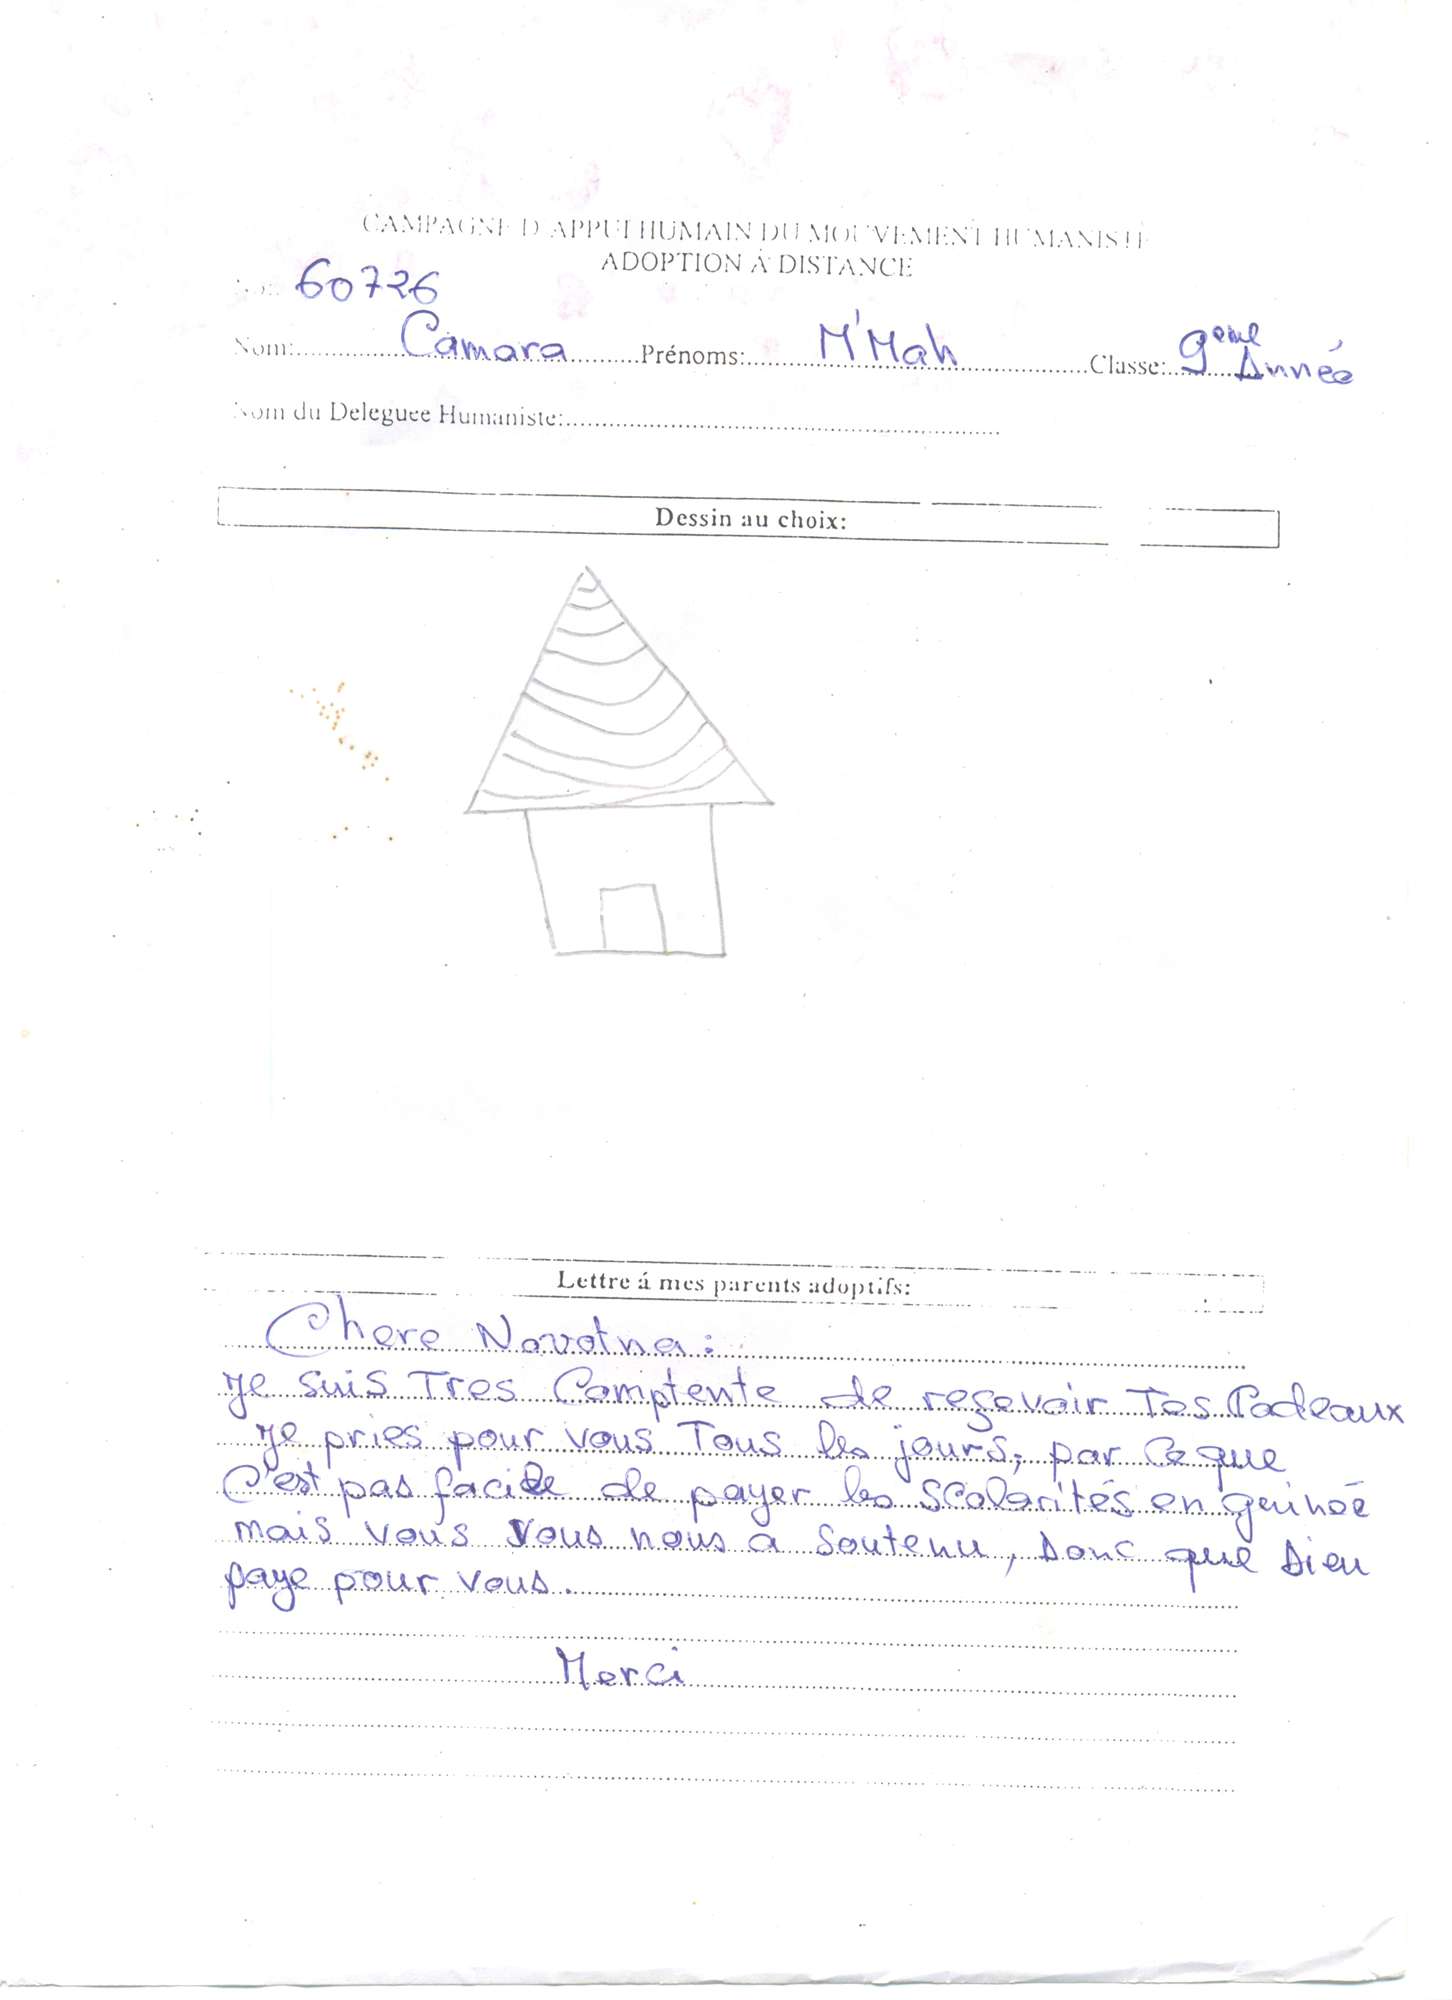 CAMPAGNE D'APPUI HUMAIN DU MOUVEMENT HUMANISTE
ADOPTION À DISTANCE
60726
Nom:..............Camara..........Prénoms:..........M'Mah..............Classe: 9eme Année
Nom du Deleguee Humaniste:..................................................
Dessin au choix:
Lettre á mes parents adoptifs:
Chere Novotna :
Je suis Tres Comptente de reşevoir Tes Cadeaux
Je pries pour vous Tous les jours, par ce que
C'est pas facile de payer les scolarités en guinée
mais vous vous nous a soutenu, Donc que Dieu
paye pour vous.
Merci